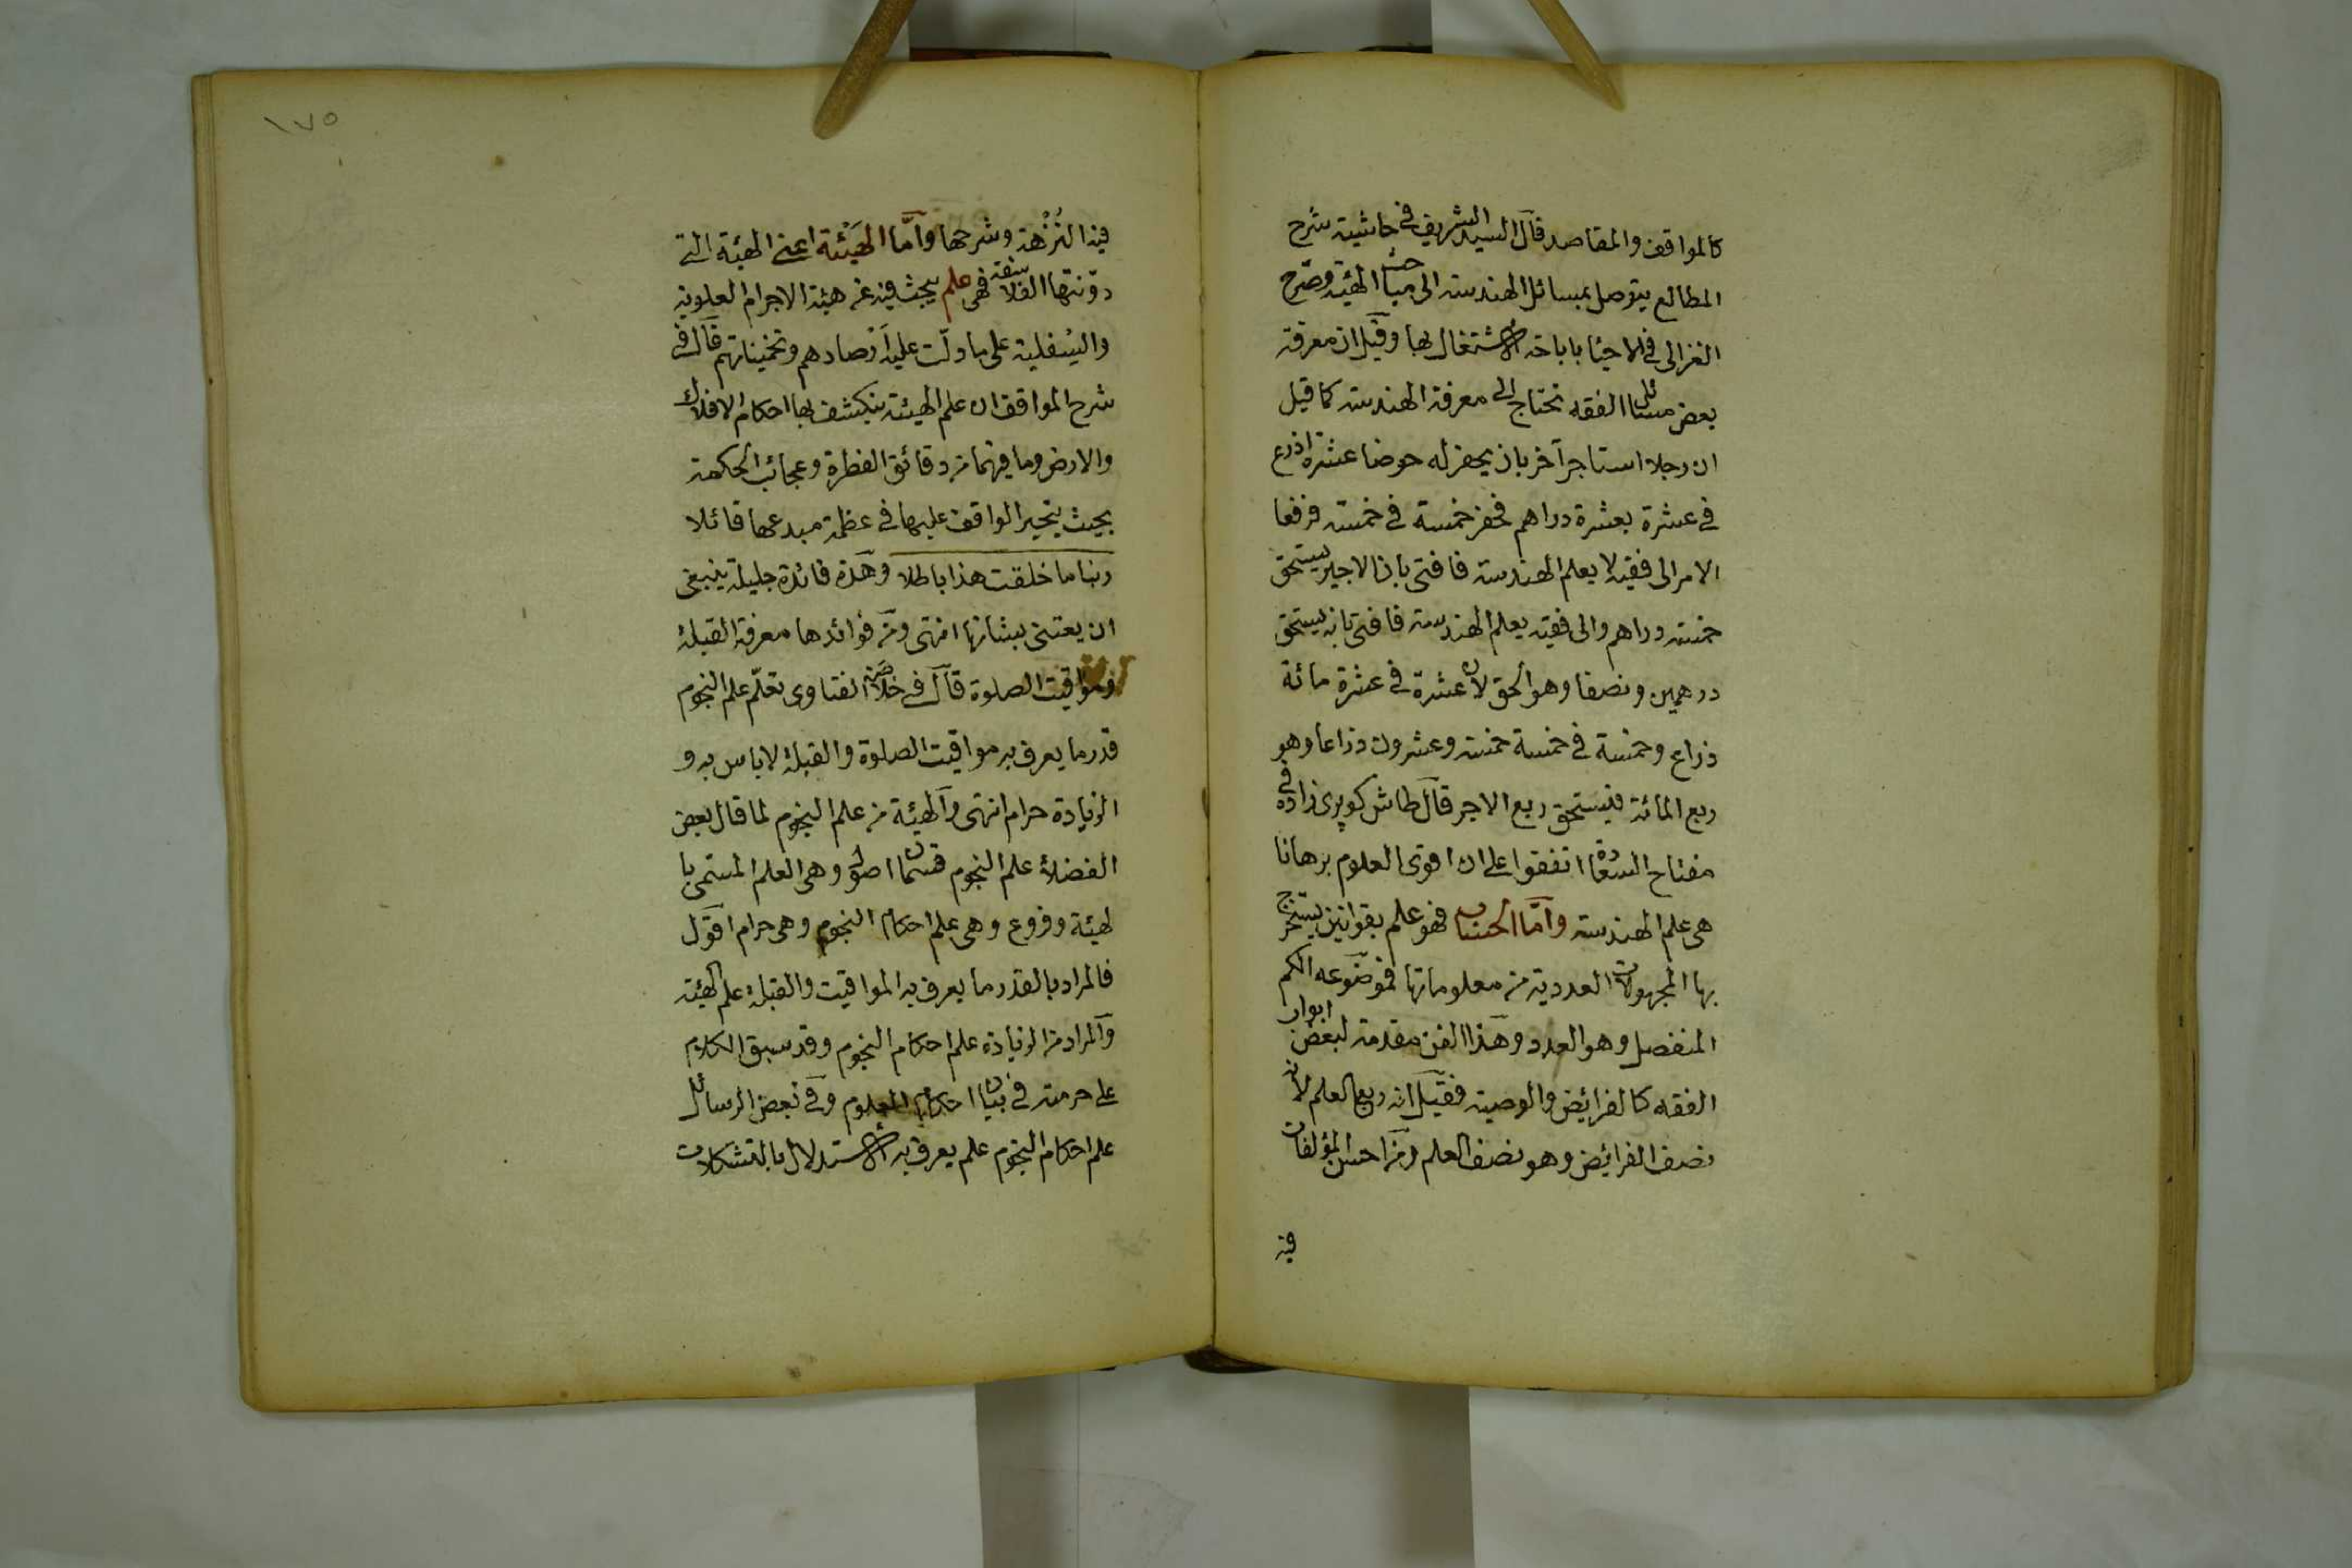 كالمواقف والمقاصد قال السيد الشريف في حاشية شرح
المطالع يتوصل بمسائل الهندسة الى مباحث الهيئة وصرح
الغزالى في الاحيا باباحة الاشتغال بها وقيل ان معرفة
بعض مسائل الفقه تحتاج الى معرفة الهندسة كما قيل
ان رجلا استاجر آخر بان يحفر له حوضا عشرة اذرع
في عشرة بعشرة دراهم فحفر خمسة في خمسة فرفعا
الامر الى فقيه لا يعلم الهندسة فافتى بان الاجير يستحق
خمسة دراهم والى فقيه يعلم الهندسة فافتى بانه يستحق
درهمين ونصفا وهو الحق لان عشرة في عشرة مائة
ذراع وخمسة في خمسة خمسة وعشرون ذراعا وهو
ربع المائة فيستحق ربع الاجر قال طاش كوپرى زاده في
مفتاح السعادة اتفقوا على ان اقوى العلوم برهانا
هى علم الهندسة وامّا الحساب فهو علم بقوانين يستخرج
بها المجهولات العددية من معلوماتها فموضوعه الكم
المنفصل وهو العدد وهذا الفن مقدمة لبعض ابواب
الفقه كالفرائض والوصية فقيل انه ربع العلم لانه
نصف الفرائض وهو نصف العلم ومن احسن المؤلفات
فيه
١٧٥
فيه النُزْهة وشرحها وامّا الهَيْئة اعنى الهيئة التى
دوّنتها الفلاسفة فهى علم يبحث فيه عن هيئة الاجرام العلوية
والسُفلية على ما دلّت عليه أرصادهم وتخميناتهم قال في
شرح المواقف ان علم الهيئة ينكشف بها احكام الافلاك
والارض وما فيهما من دقائق الفطرة وعجائب الحكمة
بحيث يتحير الواقف عليها في عظمة مبدعها قائلا
ربنا ما خلقت هذا باطلا وهذه فائدة جليلة ينبغى
ان يعتنى بشانها انتهى ومن فوائدها معرفة القبلة
ومواقيت الصلوة قال في خلاصة الفتاوى تعلّم علم النجوم
قدر ما يعرف به مواقيت الصلوة والقبلة لا باس به و
الزيادة حرام انتهى والهيئة من علم النجوم لما قال بعض
الفضلاء علم النجوم قسمان اصول وهى العلم المسمى با
لهيئة وفروع وهى علم احكام النجوم وهى حرام اقول
فالمراد بالقدر ما يعرف به المواقيت والقبلة علم الهيئة
والمراد من الزيادة علم احكام النجوم وقد سبق الكلام
على حرمته في بيان احكام العلوم وفي بعض الرسائل
علم احكام النجوم علم يعرف به الاستدلال بالتشكلات